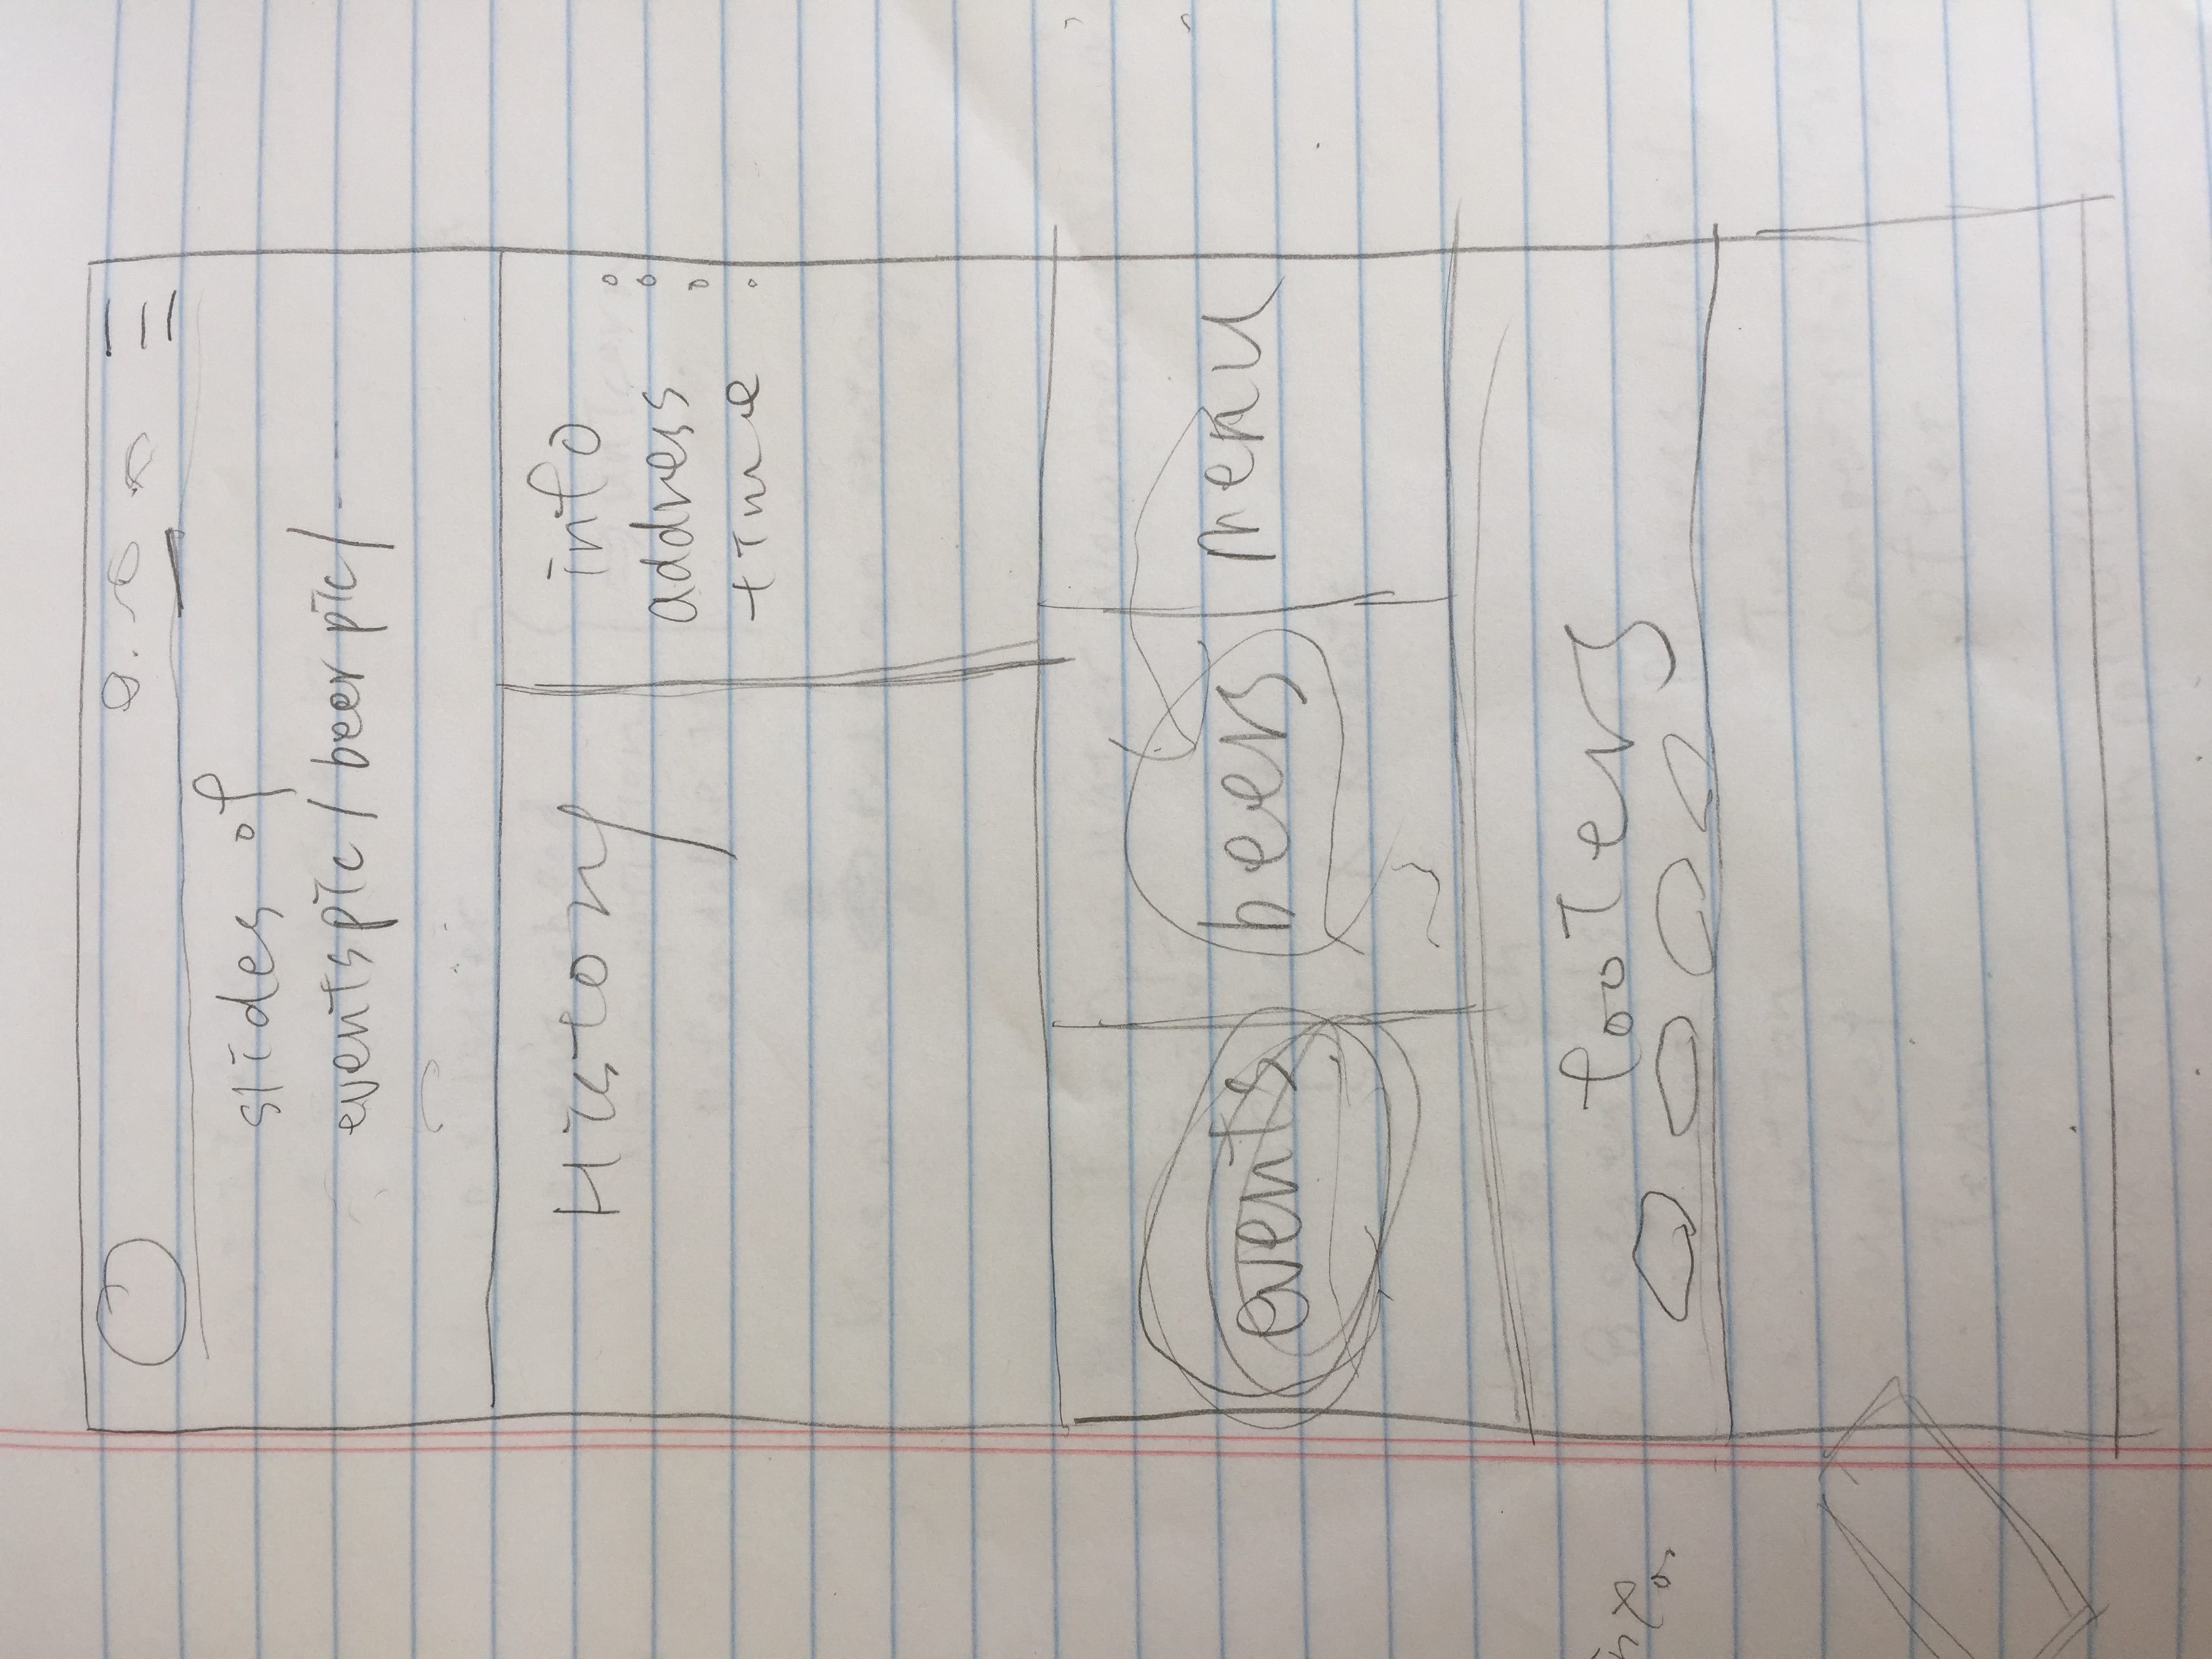 slides of
events pic / beer pic / ----
History
info
address
time
events
beers
menu
footers